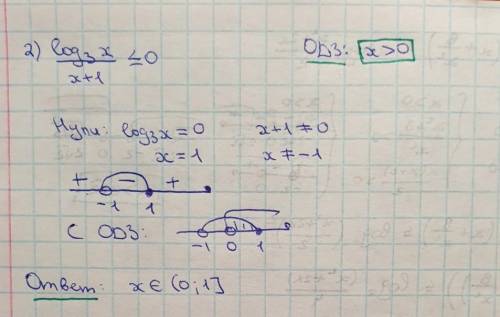 2) log₃x / x+1 ≤ 0 ОДЗ: x>0
Нули: log₃x = 0 x+1 ≠ 0
x = 1 x ≠ -1
+ − +
-1 1
С ОДЗ: -1 0 1
Ответ: x ∈ (0; 1]